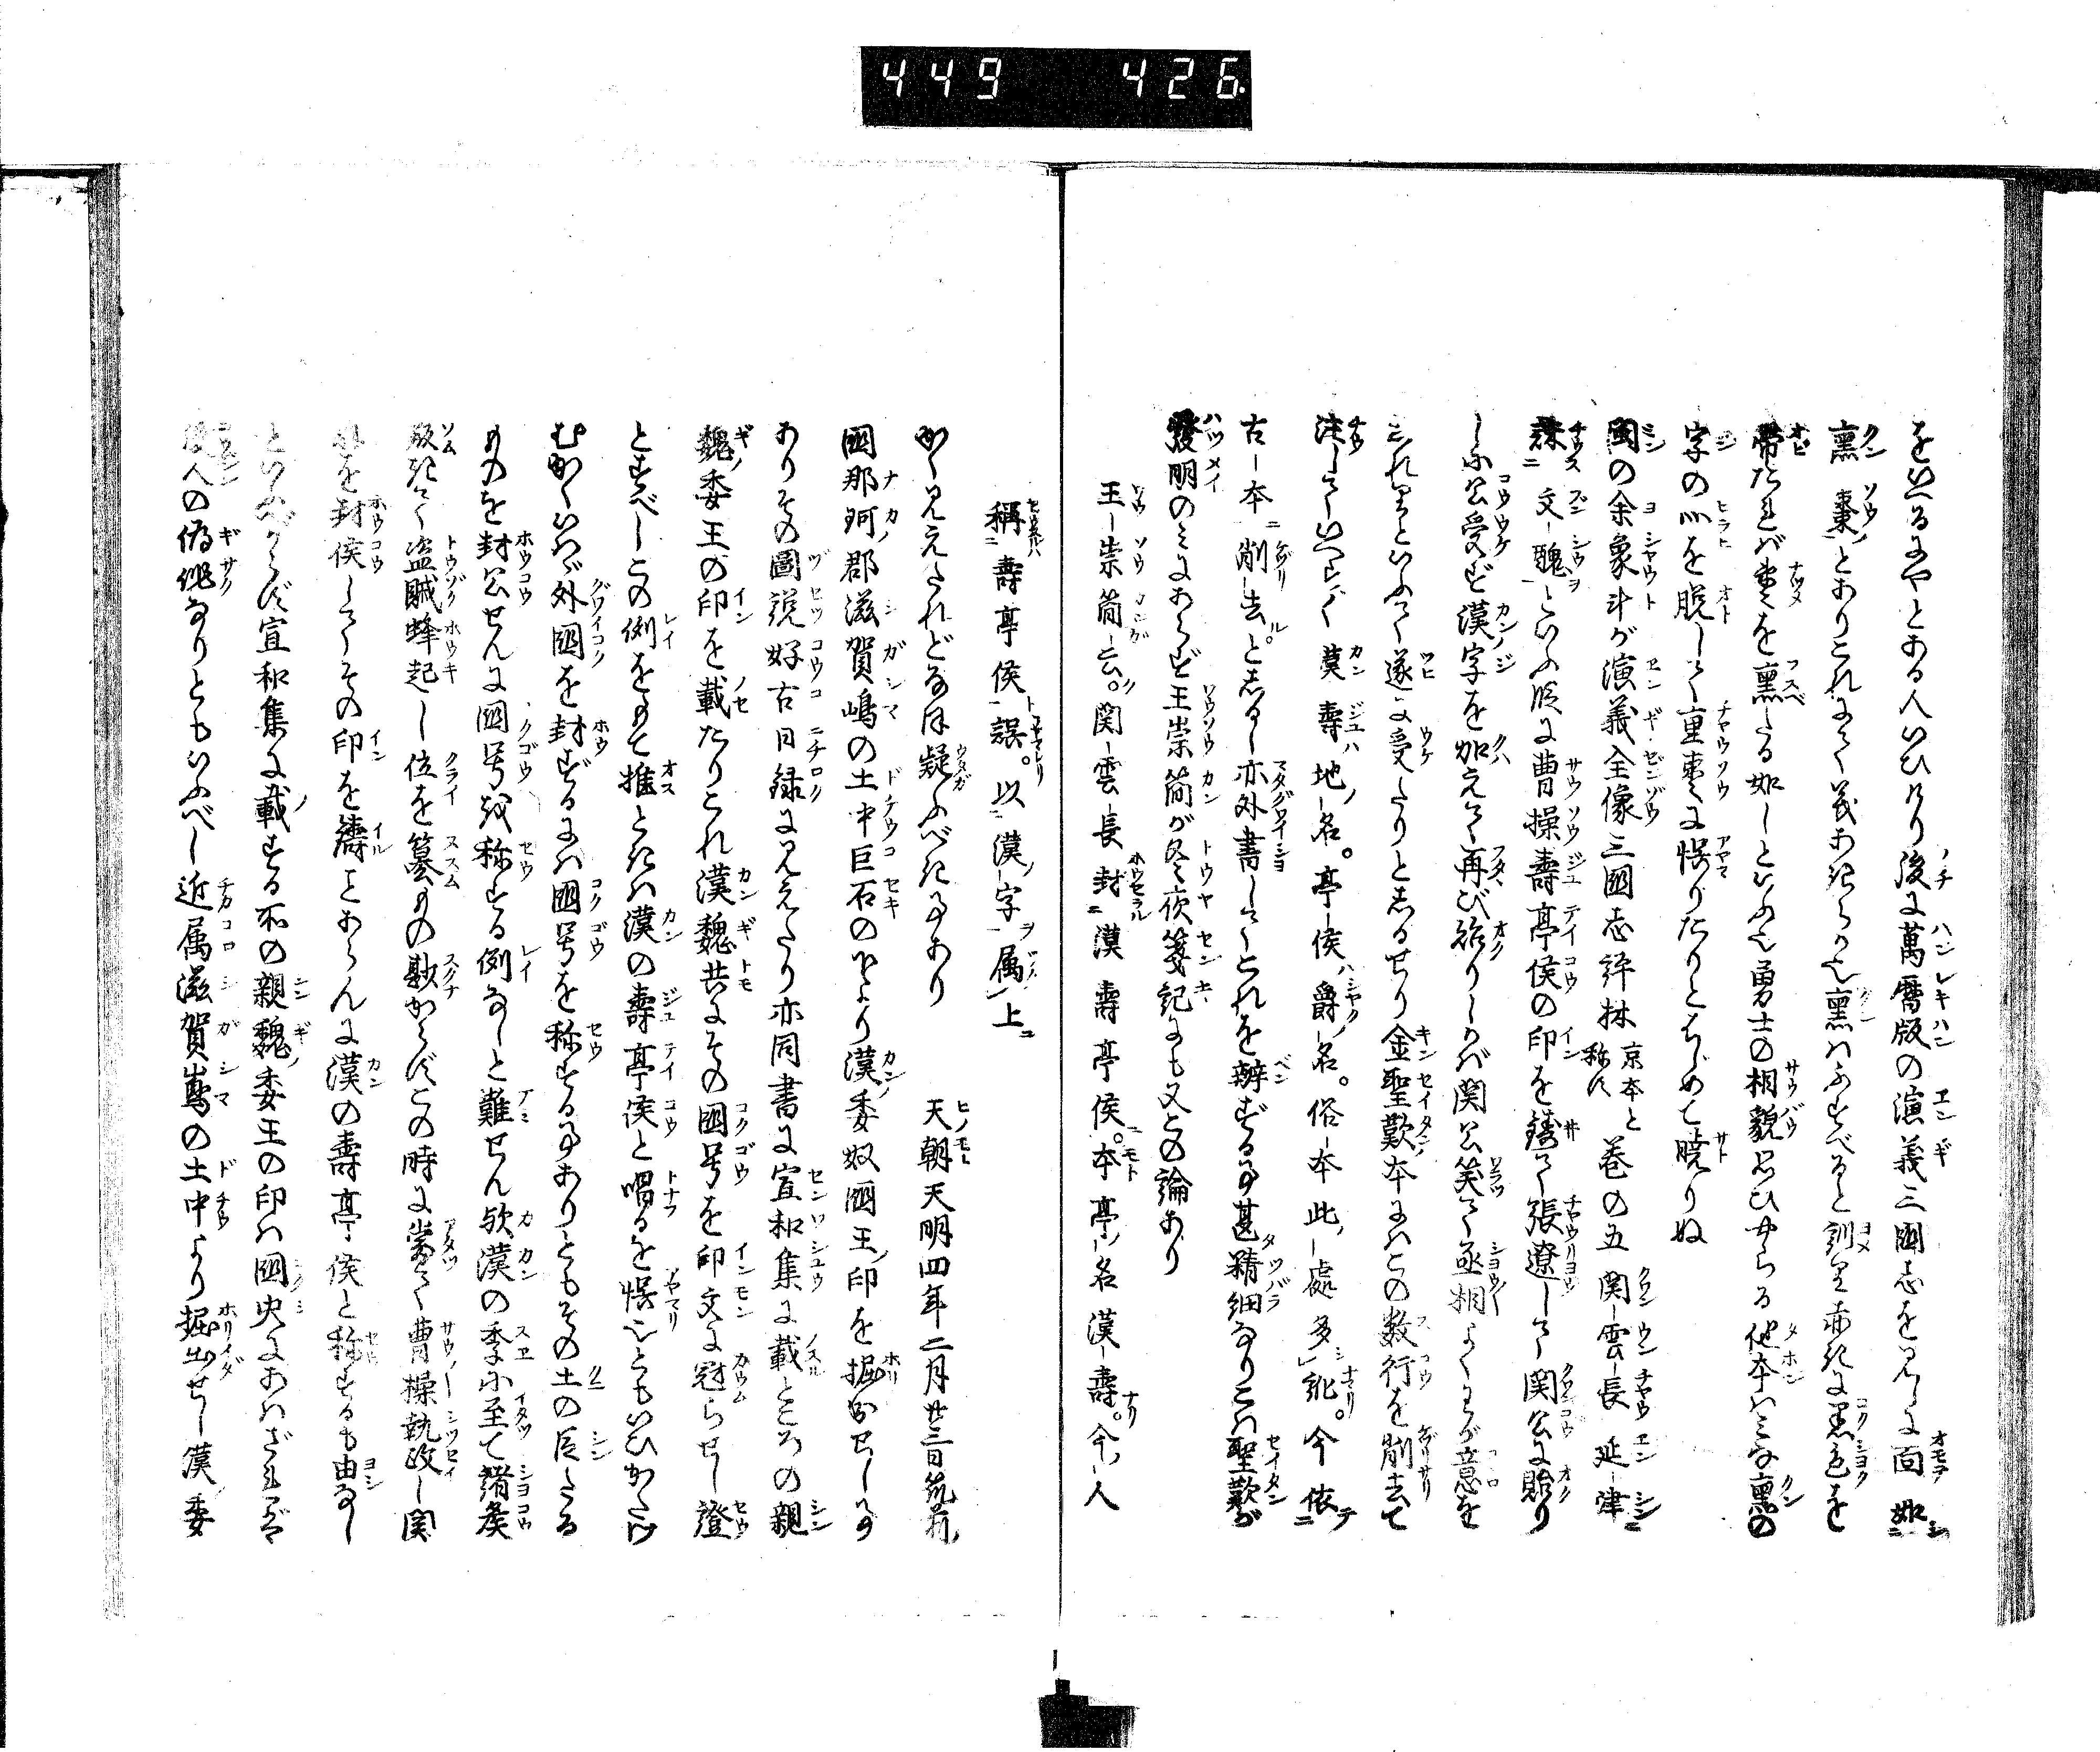 449 426
をいへるにやとある人いひけり後に萬暦版の演義三國志を見しに面如
熏棗とありこれにて義あきらか也熏はふすべると訓り赤きに黒色を
帯たれば棗を熏たる如しといふ也勇士の相貌思ひやらる他本はみな熏の
字の灬を脱して重棗に悞りたりとはじめて曉りぬ
閩の余象斗が演義全像三國志評林京本と称す巻の五関雲長延津
誅文醜といふ段に曹操壽亭侯の印を鋳て張遼して関公に貽り
しに公受ず漢字を加えて再び貽りしかば関公笑て丞相よくわが意を
しれりといふて遂に受たりとしるせり金聖歎本にはこの数行を削去て
注していへらく漢壽地名亭侯爵名俗本此處多訛今依
古本削去としるし亦外書してこれを辨ずる事甚精細なりこは聖歎が
發明のみにあらず王崇簡が冬夜箋記にも又この論あり
王崇簡云関雲長封漢壽亭侯本亭名漢壽今人
稱壽亭侯誤以漢字属上
かく見えたれどなほ疑ふべき事あり 天朝天明四年二月廿三日筑前
國那珂郡滋賀嶋の土中巨石の下より漢委奴國王印を掘出せし事
ありその圖説好古日録に見えたり亦同書に宣和集に載ところの親
魏委王の印を載たりこれ漢魏共にその國号を印文に冠らせし證
とすべしこの例をもて推ときは漢の壽亭侯と唱るを悞也ともいひがたけ
むかくいはゞ外國を封ずるには國号を称する事ありともその土の臣たる
ものを封公せんに國号を称する例なしと難せん欤漢の季に至て諸矦
叛きて盗賊蜂起し位を簒もの尠からずこの時に當て曹操執政し関
羽を封侯してその印を鋳とあらんに漢の壽亭侯と称するも由なし
といふべからず宣和集に載する所の親魏委王の印は國史にあはざれば
後人の偽作なりともいふべし近属滋賀嶌の土中より掘出せし漢委